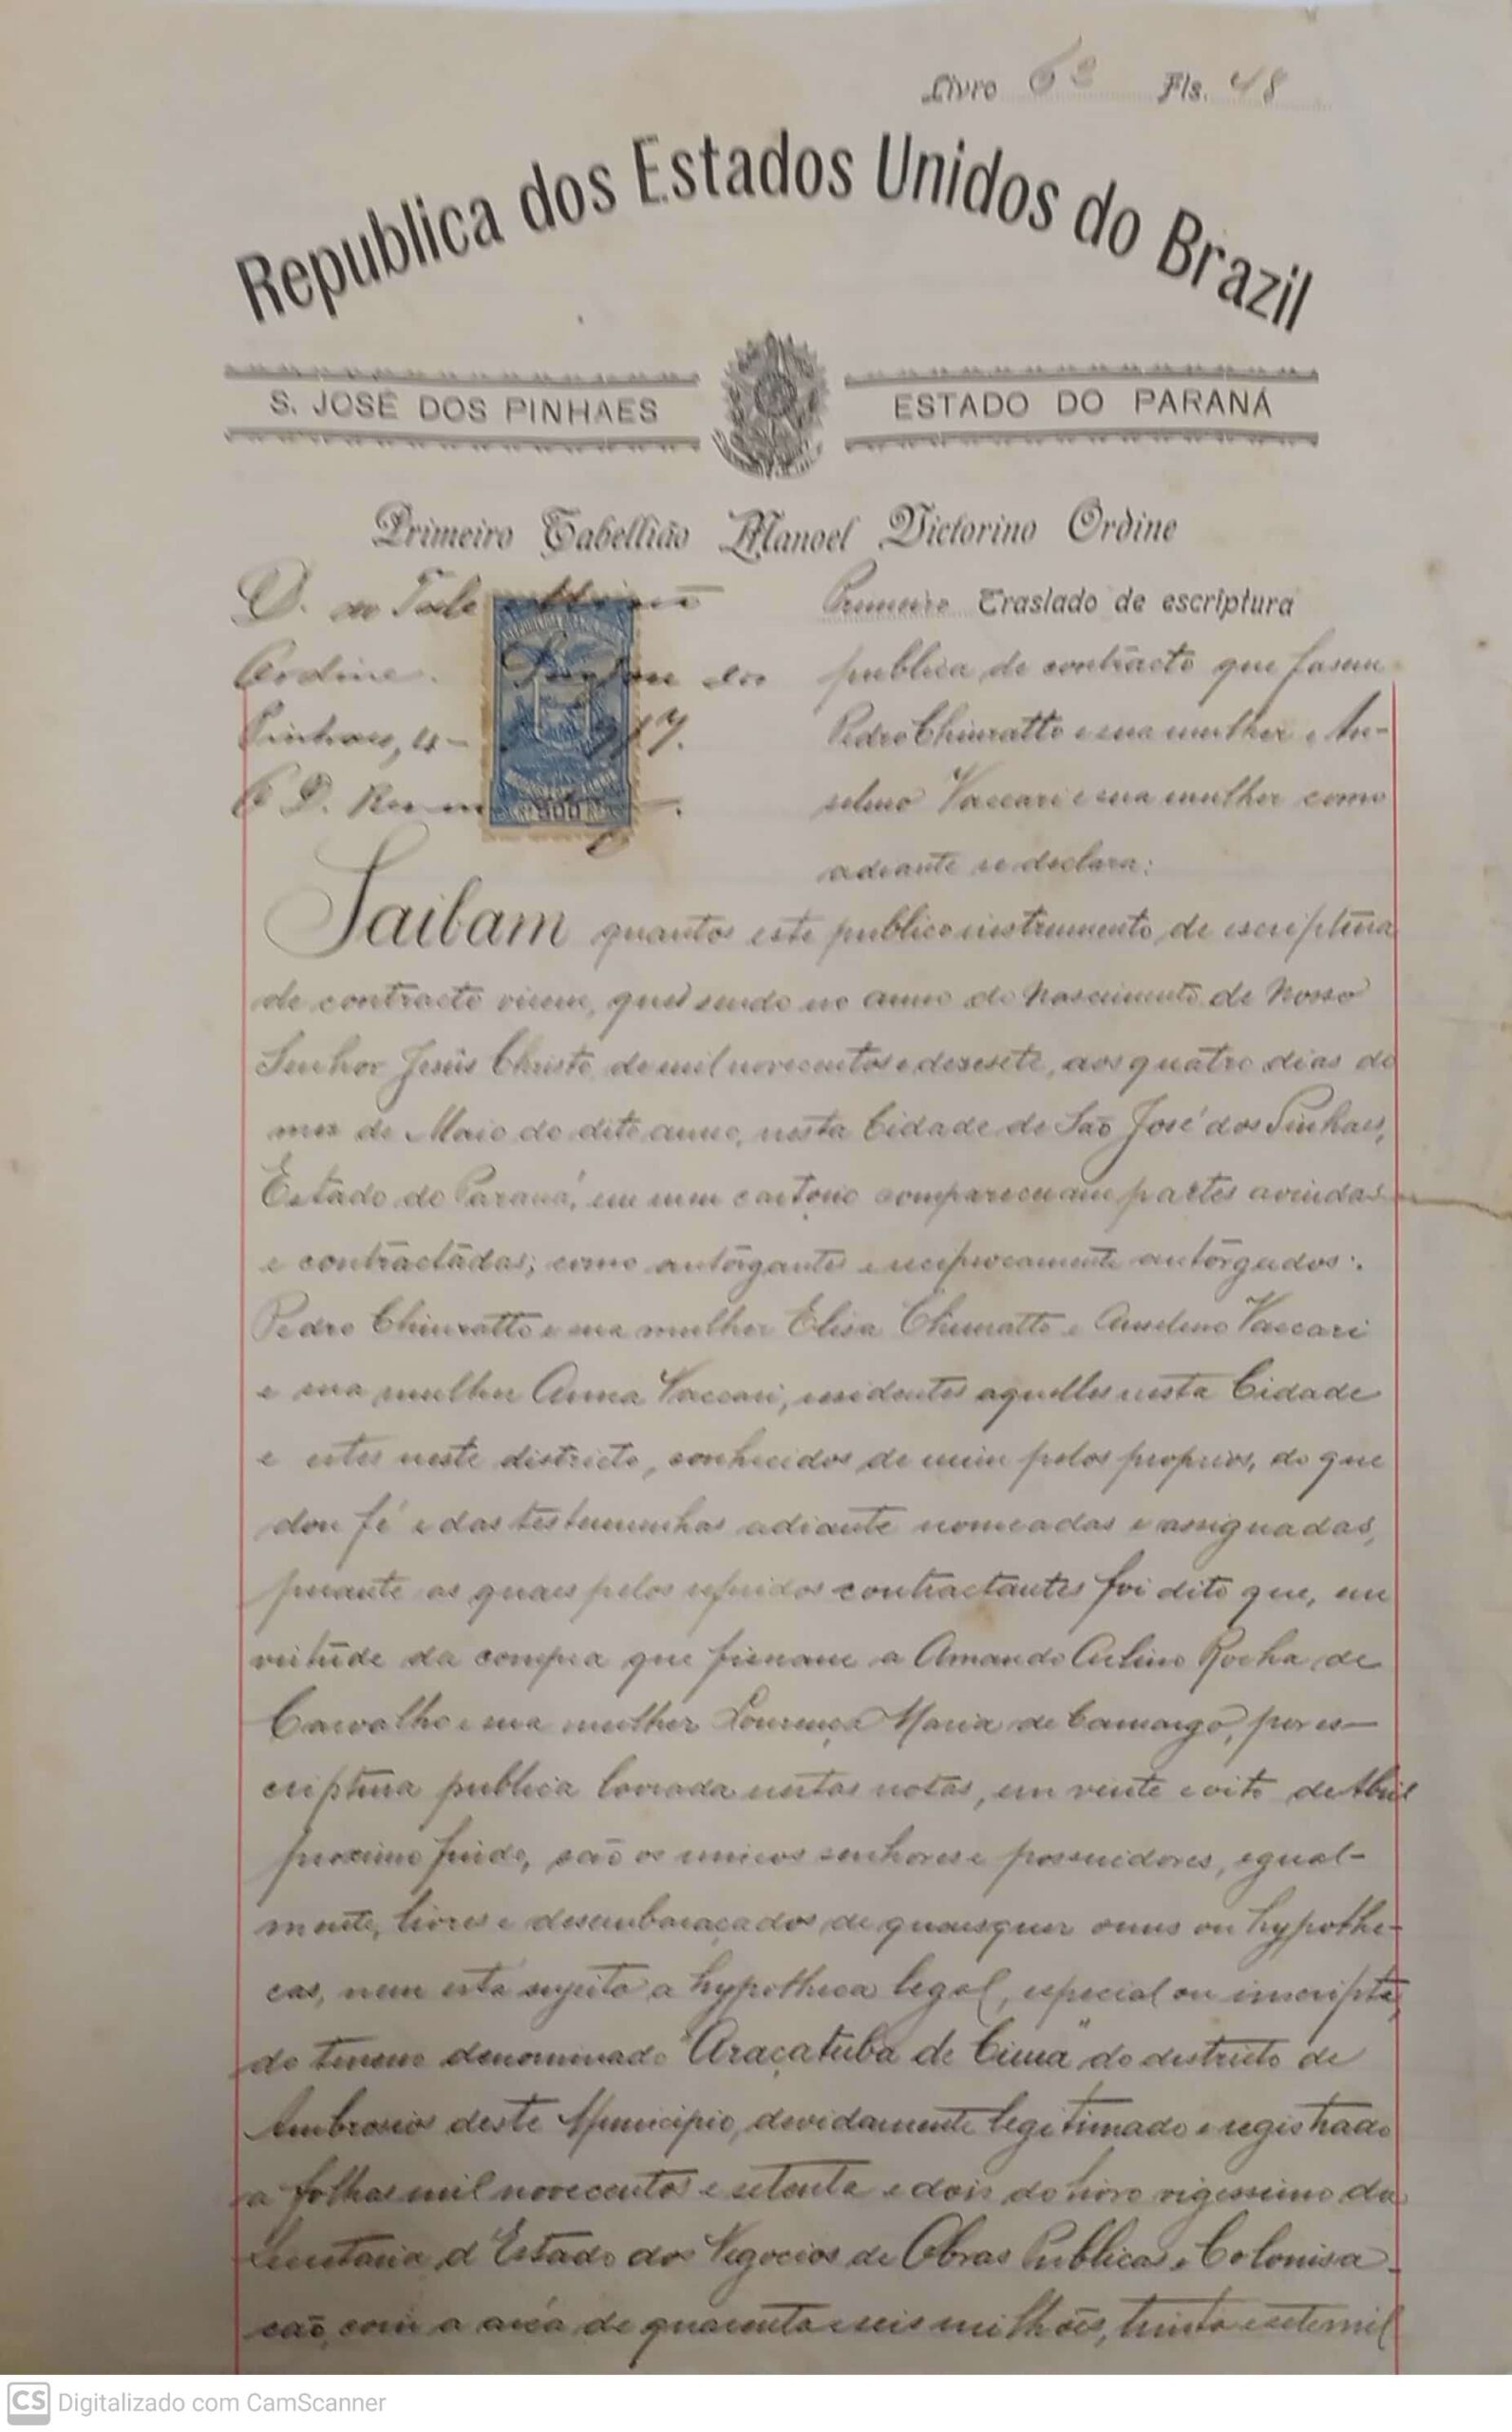 Livro 6º Fls. 48
Republica dos Estados Unidos do Brazil
S. JOSÉ DOS PINHAES
ESTADO DO PARANÁ
Primeiro Tabellião Manoel Victorino Ordine
D. ao Tabellião
Ordine.
Pinhaes, 4-
Primeiro Traslado de escriptura
publica de contracto que fasem
Pedro Chiuratto e sua mulher e An-
selmo Vaccari e sua mulher como
adeante se declara:
Saibam quantos este publico instrumento de escriptura
de contracto virem, que sendo no anno do Nascimento de Nosso
Senhor Jesus Christo de mil novecentos e desesete, aos quatro dias do
mez de Maio do dito anno, nesta Cidade de São José dos Pinhaes,
Estado do Paraná, em meu cartorio compareceram partes avindas
e contractadas; como outorgantes e reciprocamente outorgados:
Pedro Chiuratto e sua mulher Elisa Chiuratto e Anselmo Vaccari
e sua mulher Anna Vaccari, residentes aquelles nesta Cidade
e estes neste districto, conhecidos de mim pelos proprios, do que
dou fé e das testemunhas adiante nomeadas e assignadas,
perante as quaes pelos referidos contractantes foi dito que, em
virtude da compra que fizeram a Amando Rocha de
Carvalho e sua mulher Lourença Maria de Camargo, por es-
criptura publica lavrada nestas notas, em vinte e oito de Abril
proximo findo, são os unicos senhores e possuidores, egual-
mente, livres e desembaraçados de quaesquer onus ou hypothe-
cas, nem está sujeito a hypotheca legal, especial ou inscripta,
do terreno denominado "Araçatuba de Cima" do destricto de
Ambrosios deste Municipio, devidamente legitimado e registrado
a folhas mil novecentos e setenta e dois do livro vigessimo da
Secretaria d'Estado dos Negocios de Obras Publicas e Colonisa-
ção, com a area de quarenta e seis milhões, trinta e sete mil
CS Digitalizado com CamScanner